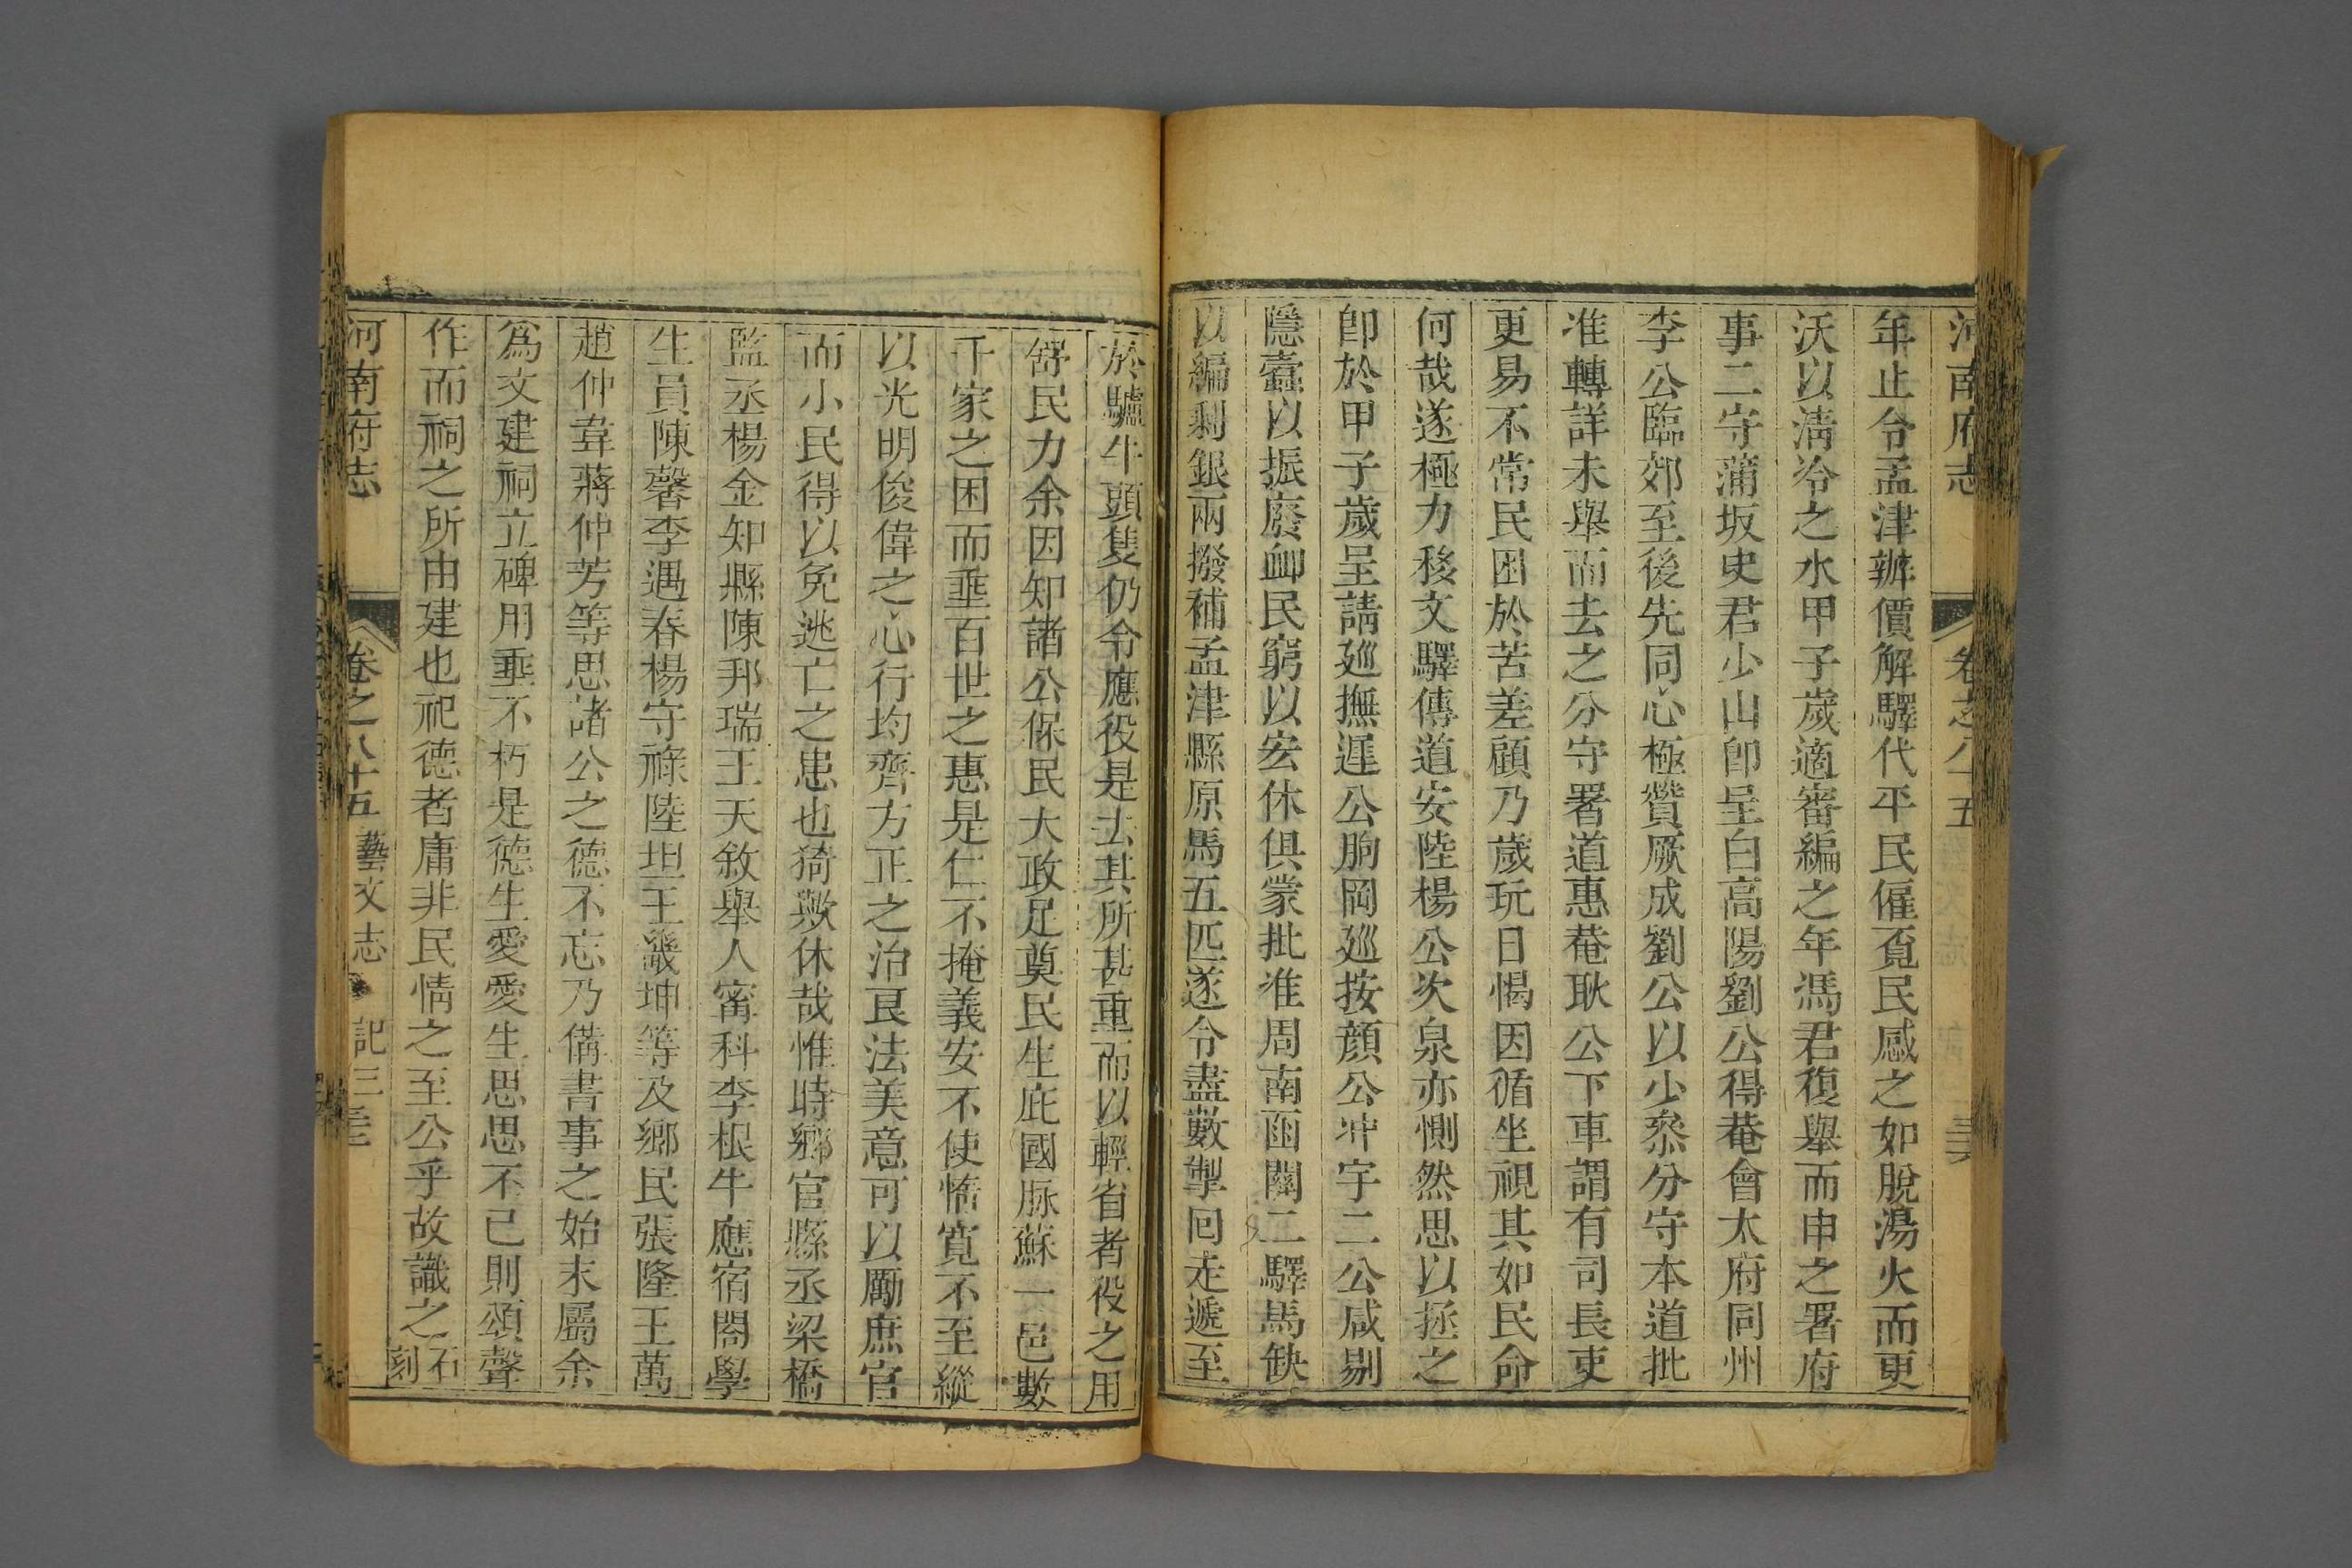 河南府志 卷之八十五
年止令孟津辦價解驛代平民僱覔民感之如脫湯火而更
沃以清冷之水甲子歲適審編之年馮君復舉而申之署府
事二守蒲坂史君少山卽呈白高陽劉公得菴會太府同州
李公臨郊至後先同心極贊厥成劉公以少叅分守本道批
准轉詳未舉而去之分守署道惠菴耿公下車謂有司長吏
更易不常民困於苦差顧乃歲玩日愒因循坐視其如民命
何哉遂極力移文驛傳道安陸楊公次泉亦惻然思以拯之
卽於甲子歲呈請廵撫遲公朐岡廵按顏公冲宇二公咸剔
隱蠹以振廢卹民窮以宏休俱蒙批准周南函關二驛馬缺
以編剩銀兩撥補孟津縣原馬五匹遂令盡數掣囘走遞至
於驢牛頭隻仍令應役是去其所甚重而以輕省者役之用
舒民力余因知諸公保民大政足奠民生庇國脉蘇一邑數
千家之困而垂百世之惠是仁不掩義安不使惰寬不至縱
以光明俊偉之心行均齊方正之治艮法美意可以勵庶官
而小民得以免逃亡之患也猗歟休哉惟時鄉官縣丞梁橋
監丞楊金知縣陳邦瑞王天敘舉人甯科李根牛應宿閻學
生員陳馨李遇春楊守祿陸坦王畿坤等及鄉民張隆王萬
趙仲韋蔣仲芳等思諸公之德不忘乃備書事之始末屬余
爲文建祠立碑用垂不朽是德生愛愛生思思不已則頌聲
作而祠之所由建也祀德者庸非民情之至公乎故識之石刻
河南府志 卷之八十五 藝文志 記三